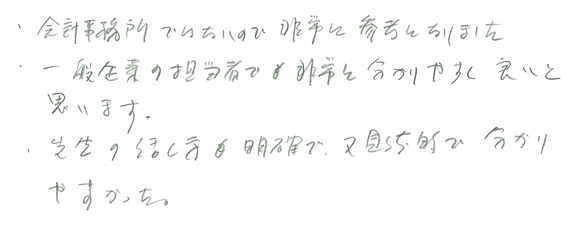 ・会計事務所ではないので非常に参考になりました
・一般企業の担当者でも非常に分かりやすく良いと
思います。
・先生の話し方も明確で、又具体的で分かり
やすかった。